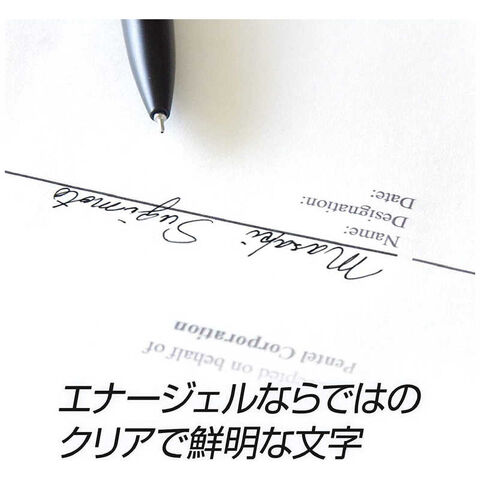 Date:
Designation:
Name:
Masaki Sugimoto
Pentel Corporation
on behalf of
エナージェルならではの
クリアで鮮明な文字